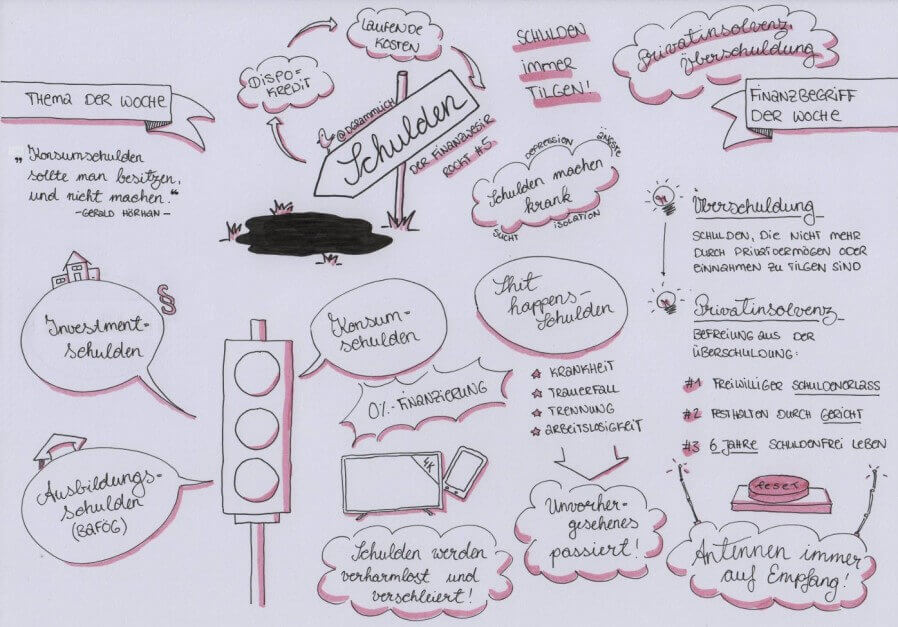 THEMA DER WOCHE
„Konsumschulden
sollte man besitzen,
und nicht machen."
-GERALD HÖRHAN-
DISPO-
KREDIT
LAUFENDE
KOSTEN
@DGRAMMLICH
Schulden
DER FINANZWESIR
ROCKT #5.
SCHULDEN
immer
TILGEN!
Privatinsolvenz
Überschuldung
FINANZBEGRIFF
DER WOCHE
DEPRESSION
ÄNGSTE
Schulden machen
krank
SUCHT
ISOLATION
Überschuldung
SCHULDEN, DIE NICHT MEHR
DURCH PRIVATVERMÖGEN ODER
EINNAHMEN ZU TILGEN SIND
Privatinsolvenz
BEFREIUNG AUS DER
ÜBERSCHULDUNG:
#1 FREIWILLIGER SCHULDENERLASS
#2 FESTHALTEN DURCH GERICHT
#3 6 JAHRE SCHULDENFREI LEBEN
reset
Antennen immer
auf Empfang!
§
Investment-
schulden
Ausbildungs-
schulden
(BAFÖG)
Konsum-
schulden
0%-FINANZIERUNG
4K
Schulden werden
verharmlost und
verschleiert!
Shit
happens-
Schulden
KRANKHEIT
TRAUERFALL
TRENNUNG
ARBEITSLOSIGKEIT
Unvorher-
gesehenes
passiert!